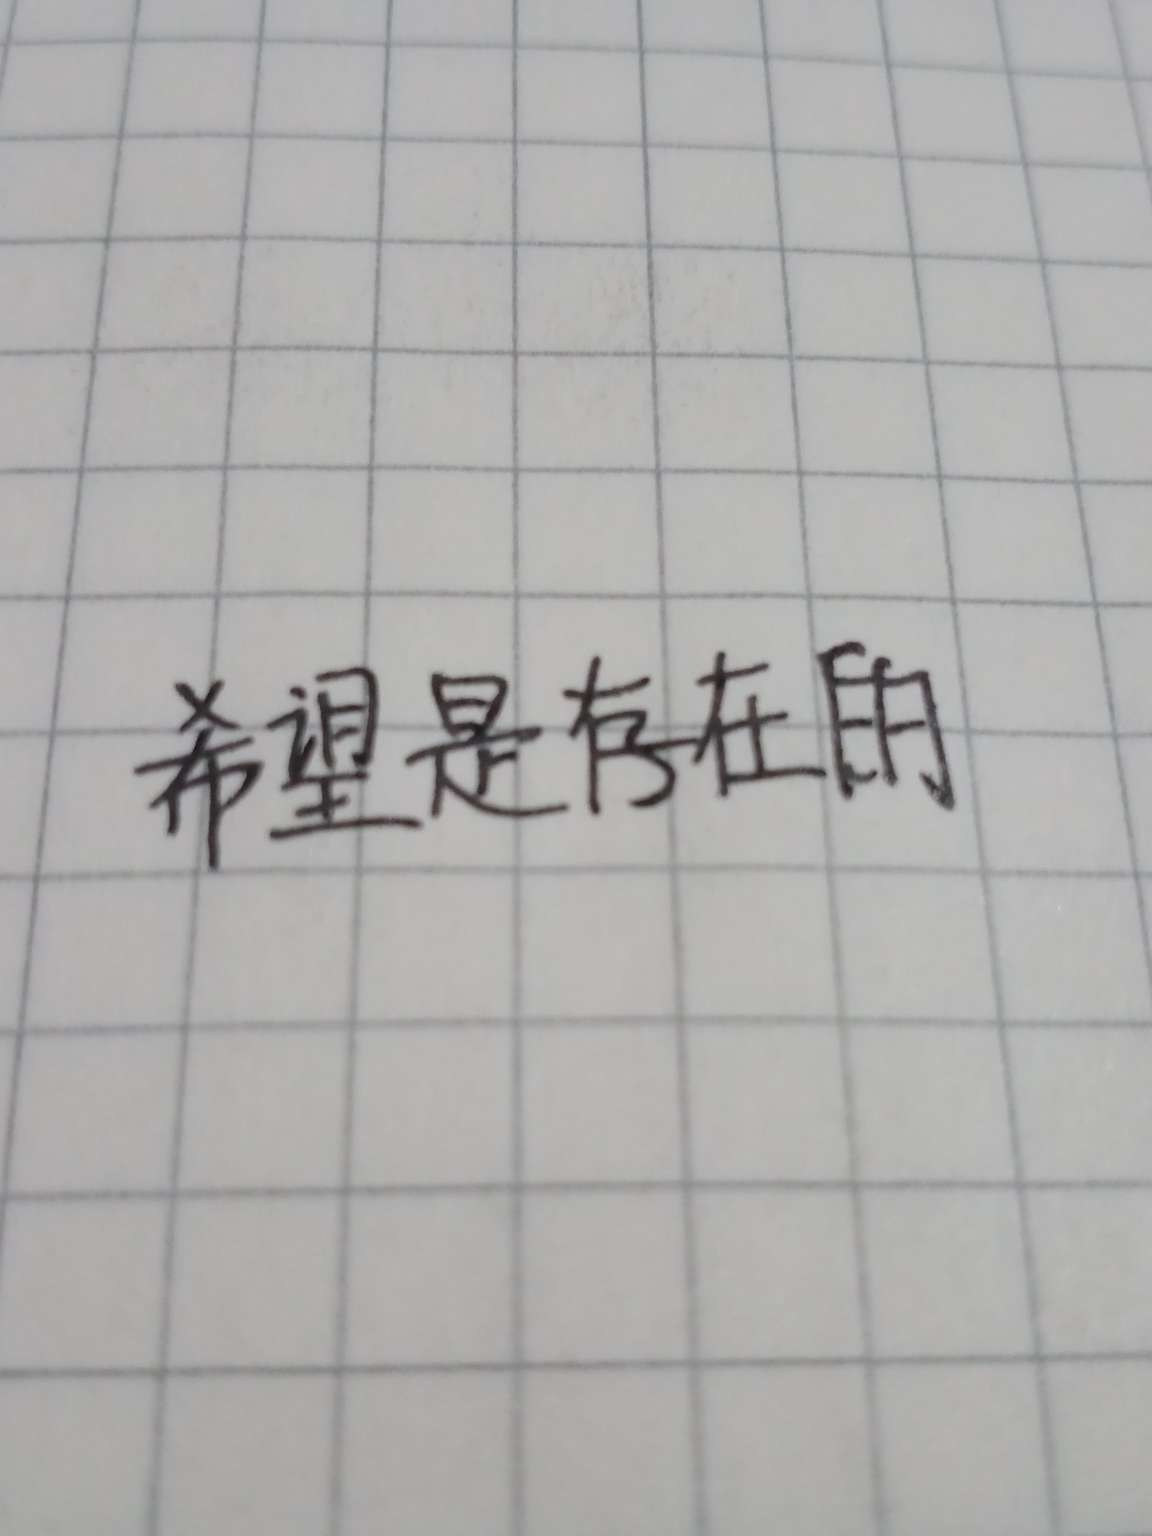 希望是存在的